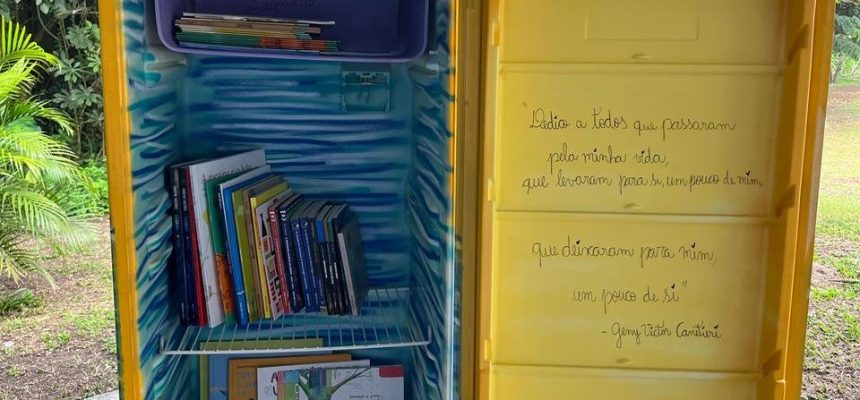 "Dedico a todos que passaram
pela minha vida,
que levaram para si, um pouco de mim,
que deixaram para mim,
um pouco de si"
- Geny Victor Canitieri